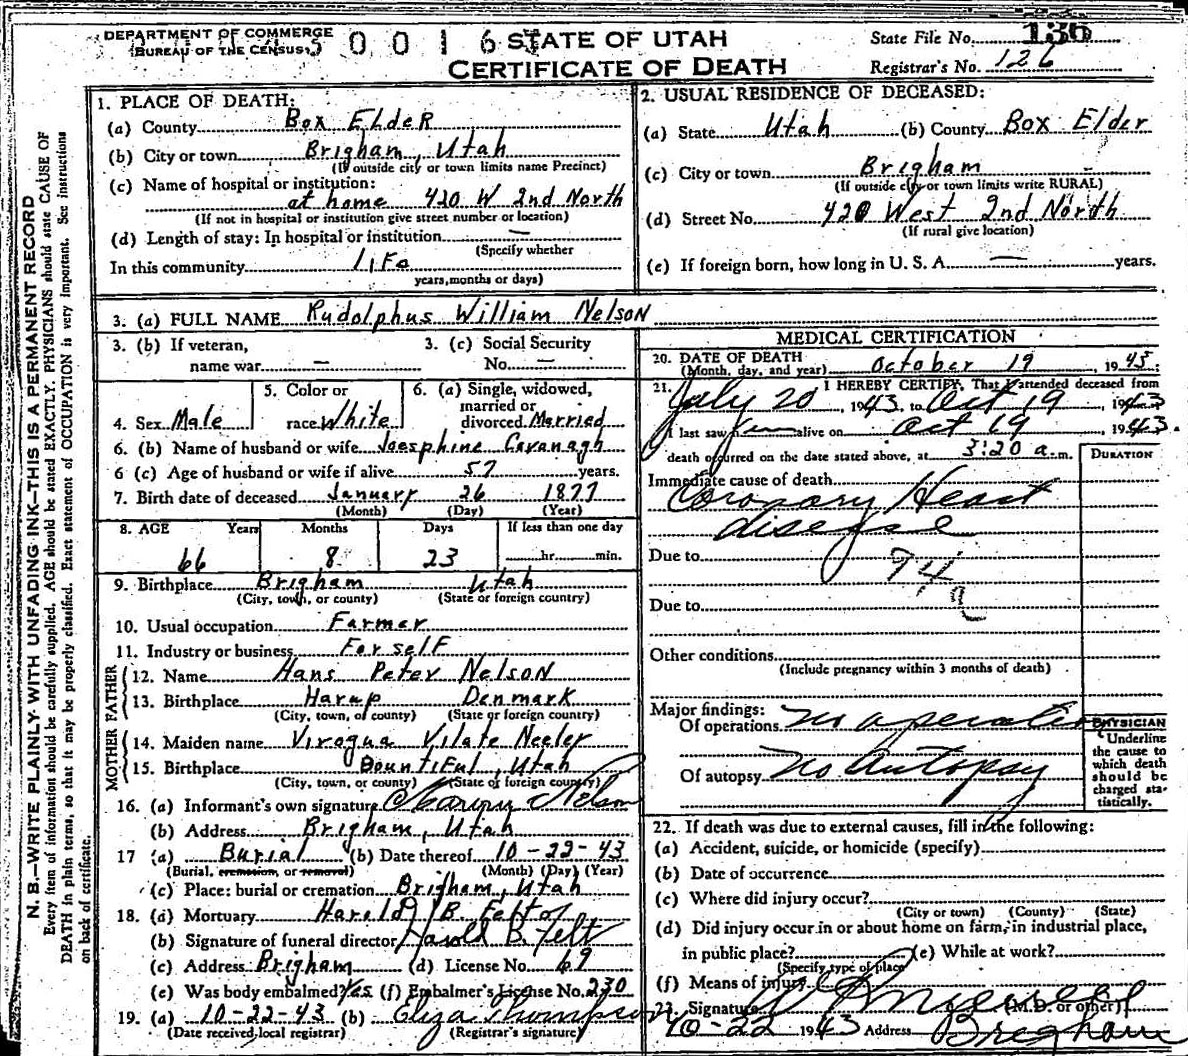 DEPARTMENT OF COMMERCE
BUREAU OF THE CENSUS
0 0 1 6
STATE OF UTAH
CERTIFICATE OF DEATH
State File No. 136
Registrar's No. 126
N. B.—WRITE PLAINLY WITH UNFADING INK—THIS IS A PERMANENT RECORD
Every item of information should be carefully supplied. AGE should be stated EXACTLY. PHYSICIANS should state CAUSE OF
DEATH in plain terms, so that it may be properly classified. Exact statement of OCCUPATION is very important. See instructions
on back of certificate.
1. PLACE OF DEATH:
(a) County Box Elder
(b) City or town Brigham, Utah
(If outside city or town limits name Precinct)
(c) Name of hospital or institution:
at home 420 W 2nd North
(If not in hospital or institution give street number or location)
(d) Length of stay: In hospital or institution —
(Specify whether
In this community life
years, months or days)
2. USUAL RESIDENCE OF DECEASED:
(a) State Utah (b) County Box Elder
(c) City or town Brigham
(If outside city or town limits write RURAL)
(d) Street No. 420 West 2nd North
(If rural give location)
(e) If foreign born, how long in U. S. A. — years.
3. (a) FULL NAME Rudolphus William Nelson
3. (b) If veteran,
name war —
3. (c) Social Security
No. —
4. Sex Male
5. Color or
race White
6. (a) Single, widowed,
married or
divorced Married
6. (b) Name of husband or wife Joesphine Cavanagh
6 (c) Age of husband or wife if alive 57 years.
7. Birth date of deceased January 26 1877
(Month) (Day) (Year)
8. AGE Years Months Days If less than one day
66 8 23 hr. min.
9. Birthplace Brigham Utah
(City, town, or county) (State or foreign country)
10. Usual occupation Farmer
11. Industry or business For self
FATHER
12. Name Hans Peter Nelson
13. Birthplace Harup Denmark
(City, town, or county) (State or foreign country)
MOTHER
14. Maiden name Viroqua Vilate Neeley
15. Birthplace Bountiful, Utah
(City, town, or county) (State or foreign country)
16. (a) Informant's own signature Nelson
(b) Address Brigham, Utah
17 (a) Burial (b) Date thereof 10-22-43
(Burial, cremation, or removal) (Month) (Day) (Year)
(c) Place: burial or cremation Brigham, Utah
18. (a) Mortuary Harold B. Felt
(b) Signature of funeral director Harold B. Felt
(c) Address Brigham (d) License No. 69
(e) Was body embalmed? Yes (f) Embalmer's License No. 230
19. (a) 10-22-43 (b) Eliza Thompson
(Date received local registrar) (Registrar's signature)
MEDICAL CERTIFICATION
20. DATE OF DEATH
(Month, day, and year) October 19, 1943
21. I HEREBY CERTIFY, That I attended deceased from
July 20, 1943, to Oct 19, 1943
I last saw him alive on Oct 19, 1943.
death occurred on the date stated above, at 3:20 a.m.
DURATION
Immediate cause of death
Coronary Heart
disease
Due to 94a
Due to
Other conditions
(Include pregnancy within 3 months of death)
Major findings:
Of operations no operation
Of autopsy no Autopsy
PHYSICIAN
Underline
the cause to
which death
should be
charged sta-
tistically.
22. If death was due to external causes, fill in the following:
(a) Accident, suicide, or homicide (specify)
(b) Date of occurrence
(c) Where did injury occur?
(City or town) (County) (State)
(d) Did injury occur in or about home on farm, in industrial place,
in public place? (e) While at work?
(Specify type of place)
(f) Means of injury
23. Signature (M.D. or other)
10-22 1943 Address Brigham